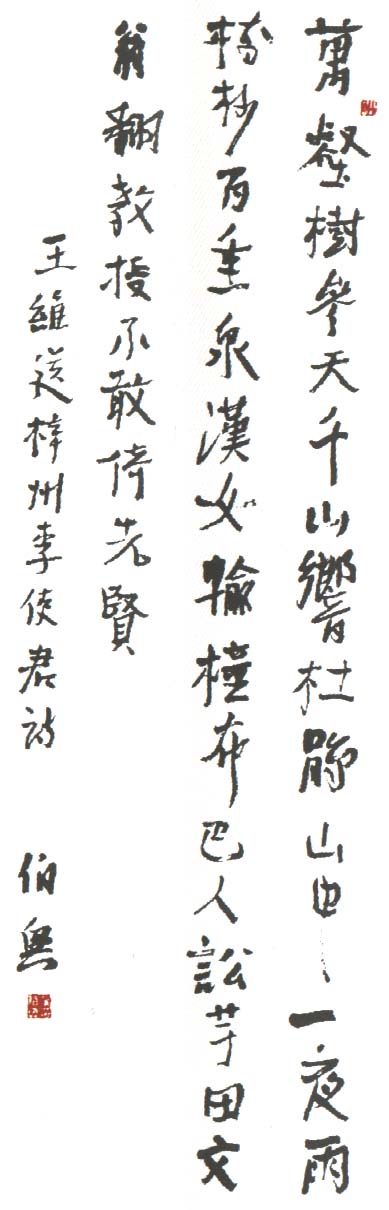 萬壑樹參天千山響杜鵑山中一夜雨
樹杪百重泉漢女輸橦布巴人訟芋田文
翁翻教授不敢倚先賢
王維送梓州李使君詩 伯